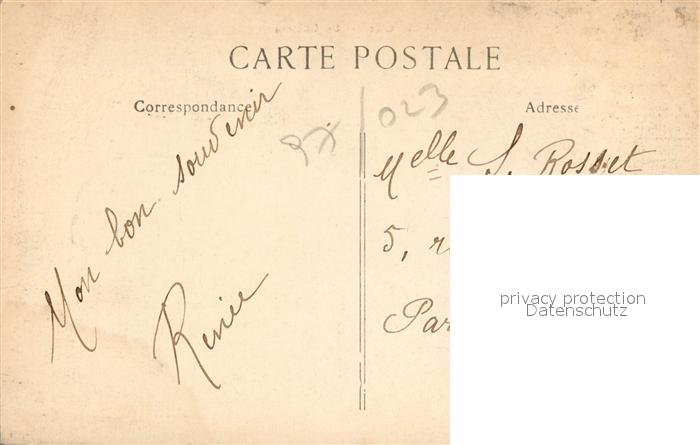 CARTE POSTALE
Correspondance
Adresse
Mon bon souvenir
Renée
97/023
Melle S. Rosset
5,
privacy protection
Datenschutz